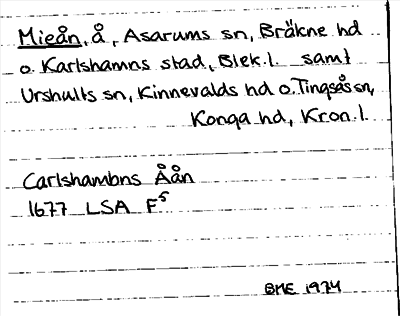 Mieån, å, Asarums sn, Bräkne hd
o. Karlshamns stad, Blek.l. samt
Urshults sn, Kinnevalds hd o. Tingsås sn,
Konga hd, Kron.l.
Carlshambns Åån
1677 LSA F5
BME 1974